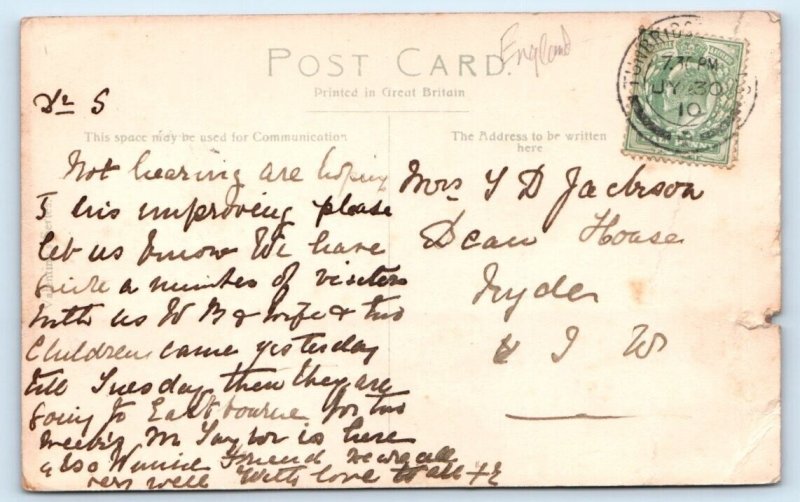 POST CARD.
England
Printed in Great Britain
TUNBRIDGE
7.30 PM
JY 30
10
Dr S
This space may be used for Communication
The Address to be written
here
Not hearing are hoping
is improving please
let us know We have
quite a number of visiters
with us W B & wife & two
Children came yesterday
till Tuesday then they are
going to Eastbourne for two
weeks Mr Taylor is here
also Friend we are all
very well With love to all
Mrs J D Jackson
Dean House
Ryde
I W